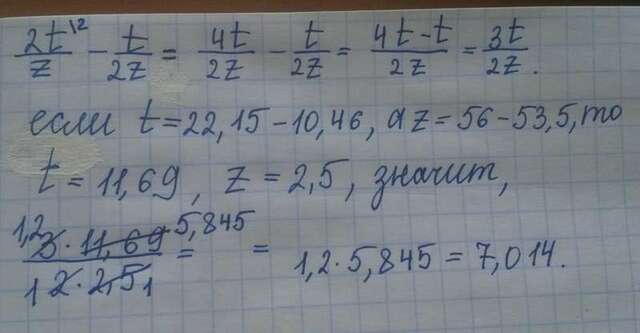 2t\2/z − t/2z = 4t/2z − t/2z = 4t−t/2z = 3t/2z.
если t=22,15−10,46, а z=56−53,5, то
t=11,69, z=2,5, значит,
1,2 3·11,69 5,845 / 1 2·2,5 1 = = 1,2·5,845=7,014.